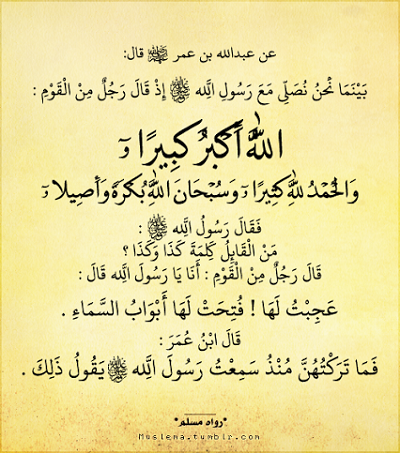 عن عبدالله بن عمر ﷺ قال:
بَيْنَمَا نَحْنُ نُصَلِّي مَعَ رَسُولِ اللَّه ﷺ إِذْ قَالَ رَجُلٌ مِنْ الْقَوْمِ :
اللَّهُ أَكْبَرُ كَبِيرًا وَ
وَالْحَمْدُ لِلَّهِ كَثِيرًا وَسُبْحَانَ اللَّهِ بُكْرَةً وَأَصِيلًا وَ
فَقَالَ رَسُولُ اللَّه ﷺ :
مَنْ الْقَائِلُ كَلِمَةَ كَذَا وَكَذَا ؟
قَالَ رَجُلٌ مِنْ الْقَوْمِ : أَنَا يَا رَسُولَ اللَّه قَالَ :
عَجِبْتُ لَهَا ! فُتِحَتْ لَهَا أَبْوَابُ السَّمَاءِ .
قَالَ ابْنُ عُمَرَ :
فَمَا تَرَكْتُهُنَّ مُنْذُ سَمِعْتُ رَسُولَ اللَّه ﷺ يَقُولُ ذَلِكَ .
*رواه مسلم*
Muslema.tumblr.com